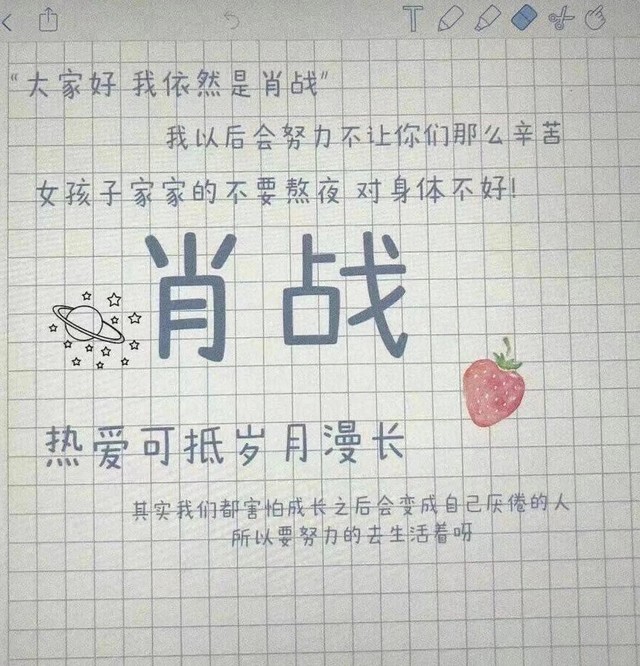 “大家好 我依然是肖战”
我以后会努力不让你们那么辛苦
女孩子家家的不要熬夜 对身体不好!
肖战
热爱可抵岁月漫长
其实我们都害怕成长之后会变成自己厌倦的人
所以要努力的去生活着呀